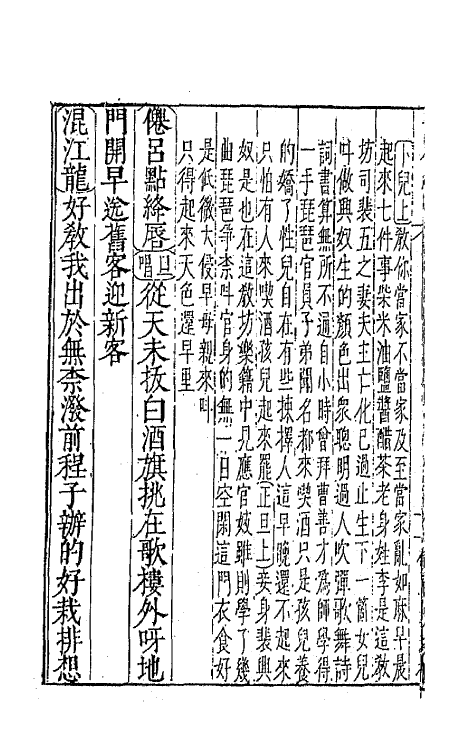 卜兒上教你當家不當家及至當家亂如麻早晨
起來七件事柴米油鹽醬醋茶老身姓李是這教
坊司裴五之妻夫主亡化已過止生下一箇女兒
叫做興奴生的顏色出衆聰明過人吹彈歌舞詩
詞書算無所不通自小時曾拜曹善才爲師學得
一手琵琶官員子弟聞名都來喫酒只是孩兒養
的嬌了性兒自在有些揀擇人這早晚還不起來
只怕有人來喫酒孩兒起來罷正旦上妾身裴興
奴是也在這教坊樂籍中見應官妓雖則學了幾
曲琵琶爭柰叫官身的無一日空閑這門衣食好
是低微大侵早母親來叫
只得起來天色還早里
僊呂點絳唇旦唱從天未拔白酒旗挑在歌樓外呀地
門開早送舊客迎新客
混江龍好教我出於無柰潑前程子辦的好栽排想